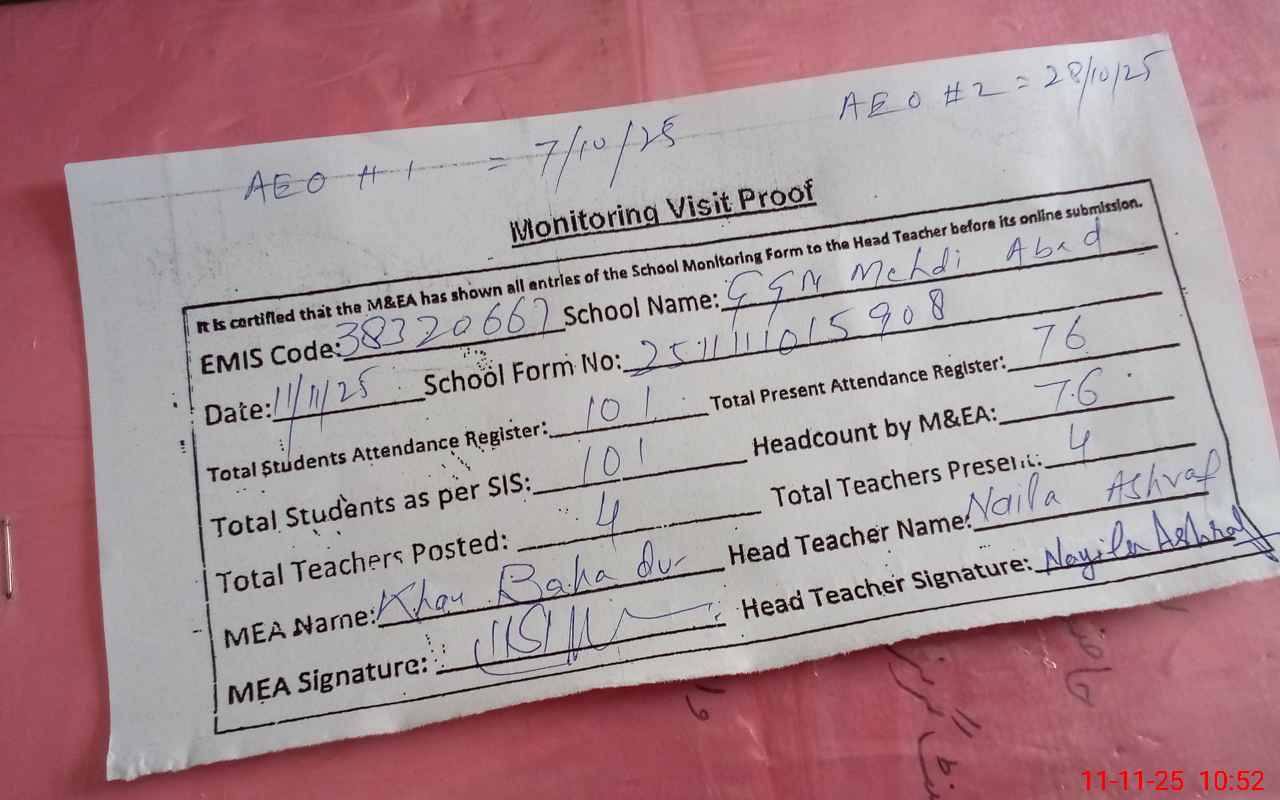 AEO #1 = 7/10/25
AEO #2 = 28/10/25
Monitoring Visit Proof
It is certified that the M&EA has shown all entries of the School Monitoring Form to the Head Teacher before its online submission.
EMIS Code: 38320667 School Name: GGM Mehdi Abad
Date: 11/11/25 School Form No: 251111015908
Total Students Attendance Register: 101 Total Present Attendance Register: 76
Total Students as per SIS: 101 Headcount by M&EA: 76
Total Teachers Posted: 4 Total Teachers Present: 4
MEA Name: Khan Bahadur Head Teacher Name: Naila Ashraf
MEA Signature: Head Teacher Signature: Nayila Ashraf
11-11-25 10:52